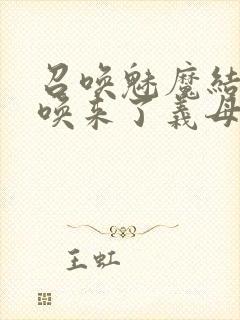 召唤魅魔结
唤来了义母
王虹